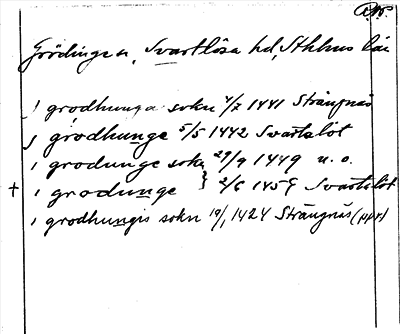 Grödinge sn, Svartlösa hd, Sthlms län
i grodhunga sokn 4/7 1441 Strängnäs
i grodhunge 5/5 1442 Svartalöt
i grodunge sokn 29/9 1449 u. o.
+ i grodunge } 2/6 1459 Svartalöt
i grodhungis sokn 19/1 1424 Strängnäs (ppr)